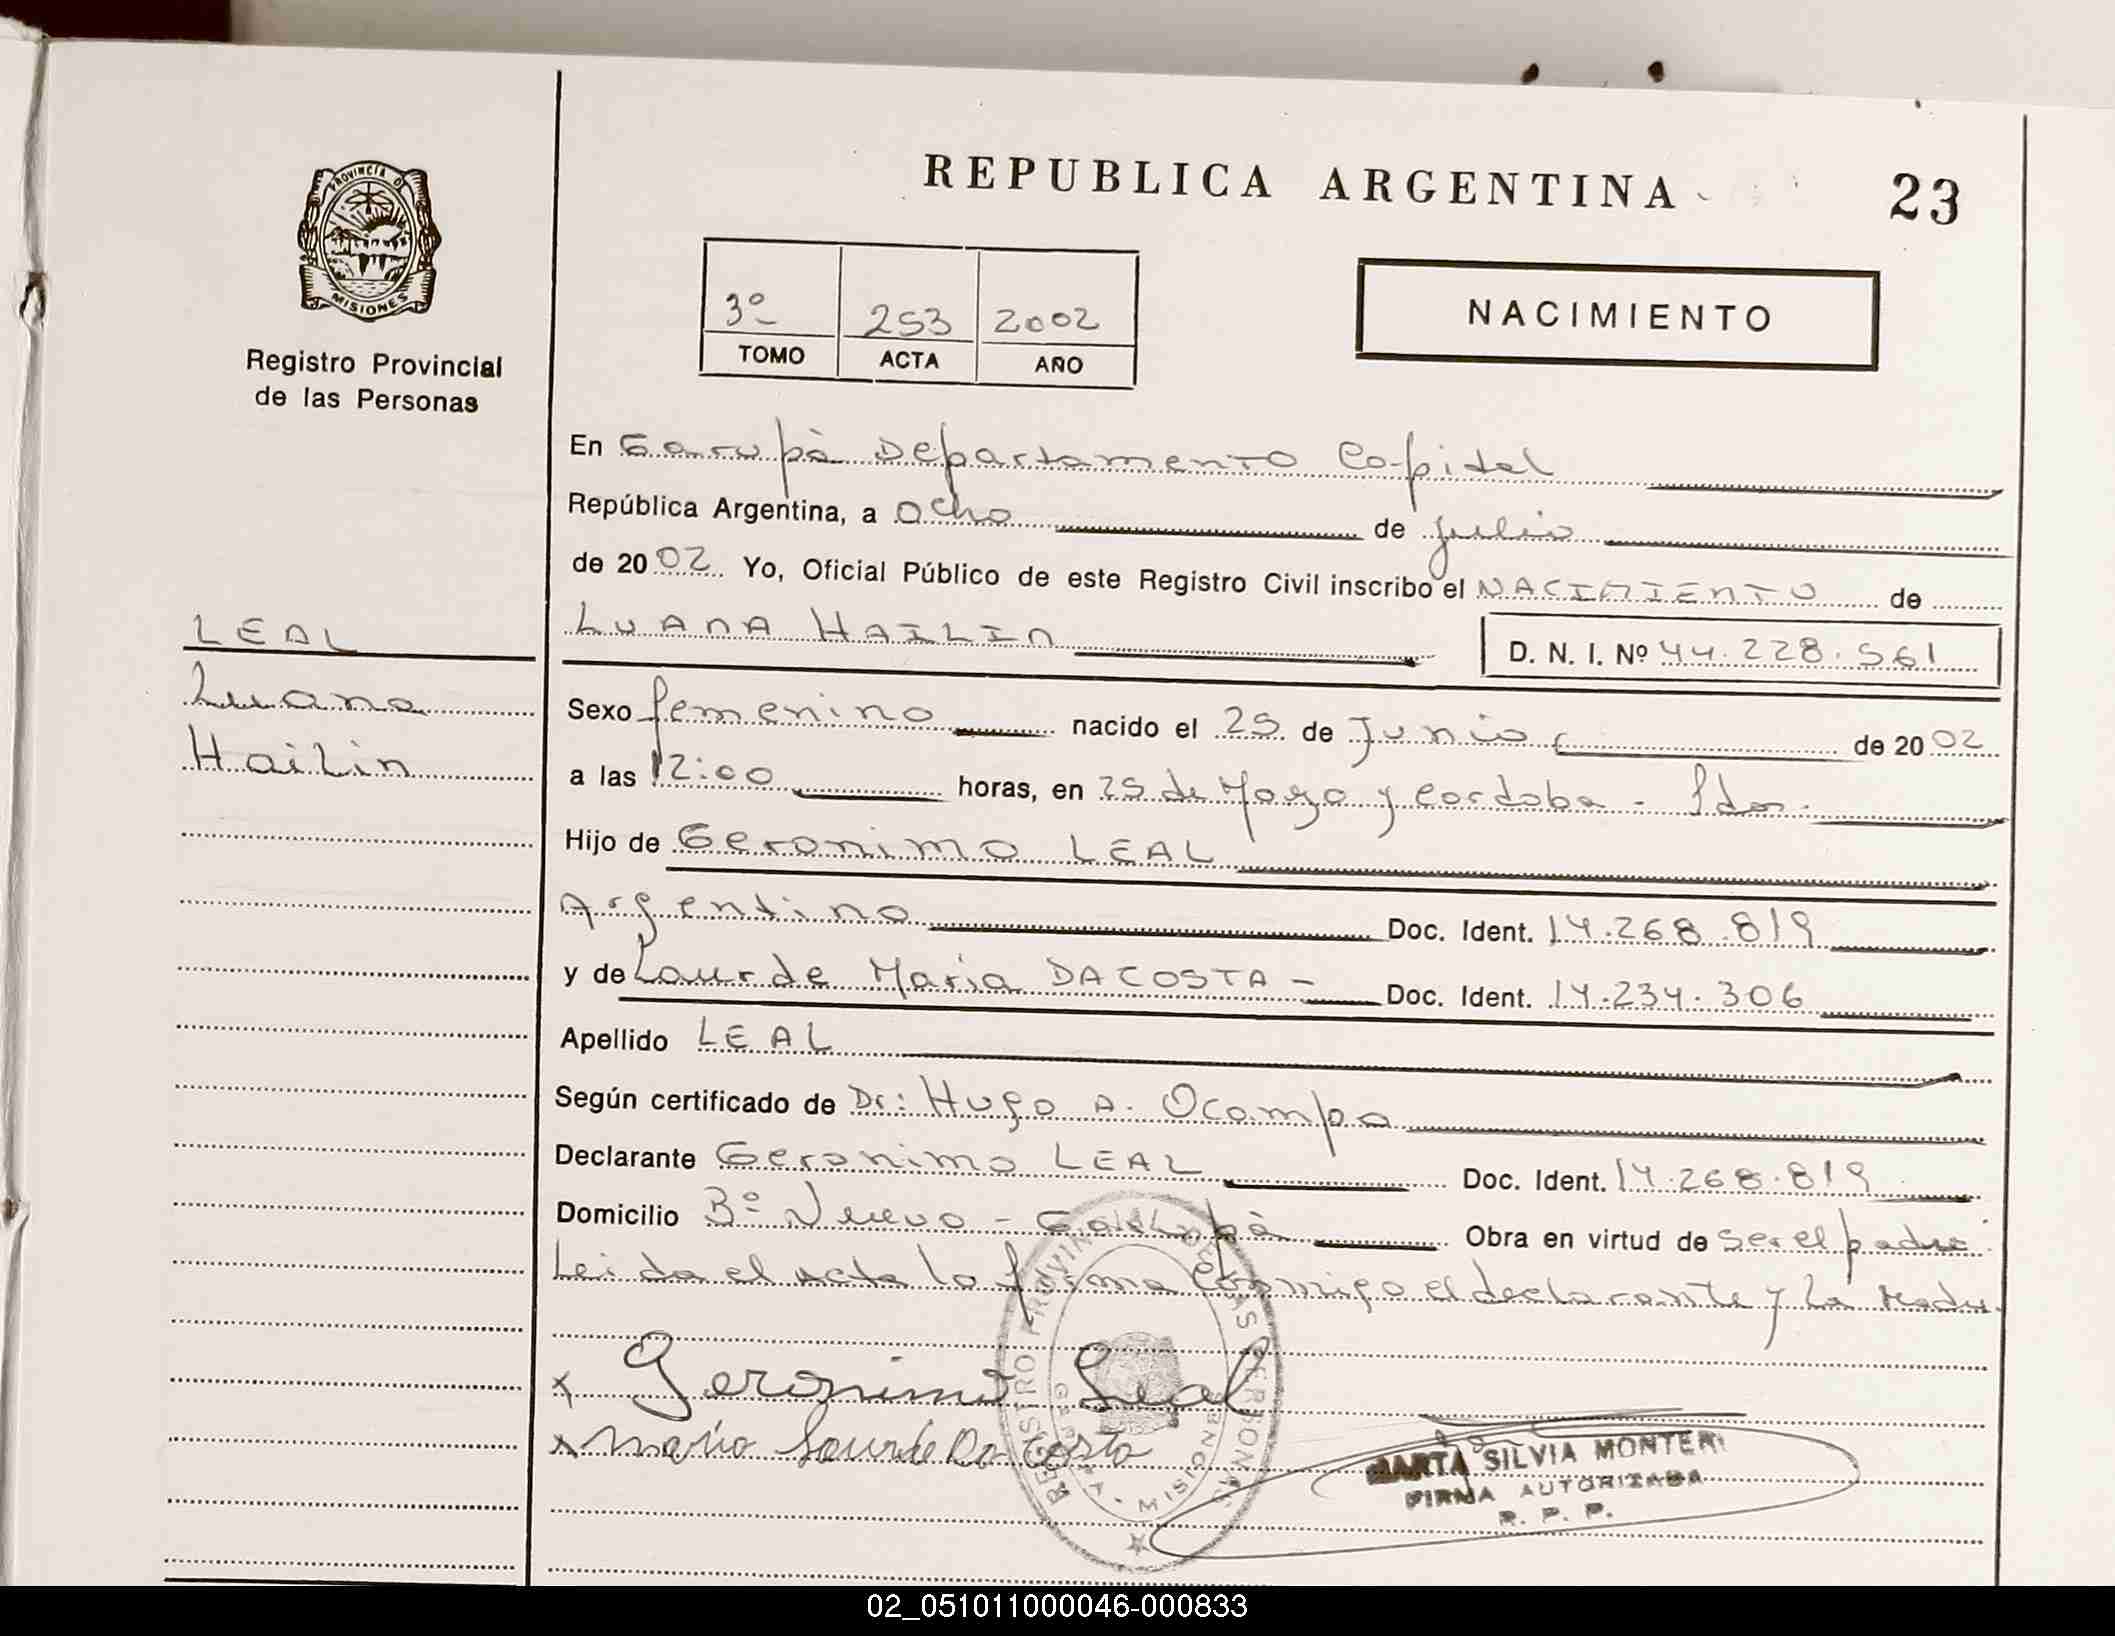 REPUBLICA ARGENTINA
23
PROVINCIA DE
MISIONES
Registro Provincial
de las Personas
3º 253 2002
TOMO ACTA AÑO
NACIMIENTO
En Garupà Departamento Capital
República Argentina, a Ocho de Julio
de 2002 Yo, Oficial Público de este Registro Civil inscribo el NACIMIENTO de
LEAL
Luana
Hailin
LUANA HAILIN D. N. I. Nº 44.228.561
Sexo femenino nacido el 25 de Junio de 2002
a las 12:00 horas, en 25 de Mayo y Cordoba - Pdas.
Hijo de Geronimo LEAL
Argentino Doc. Ident. 14.268.819
y de Lourde Maria DACOSTA - Doc. Ident. 14.234.306
Apellido LEAL
Según certificado de Dr: Hugo A. Ocampo
Declarante Geronimo LEAL Doc. Ident. 14.268.819
Domicilio Bº Nuevo - Garupà Obra en virtud de ser el padre
Leida el acta la firma conmigo el declarante y la Madre.
x Geronimo Leal
x Maria Lourde Da Costa
REGISTRO PROVINCIAL DE LAS PERSONAS
MISIONES
MARTA SILVIA MONTERI
FIRMA AUTORIZADA
R. P. P.
02_051011000046-000833